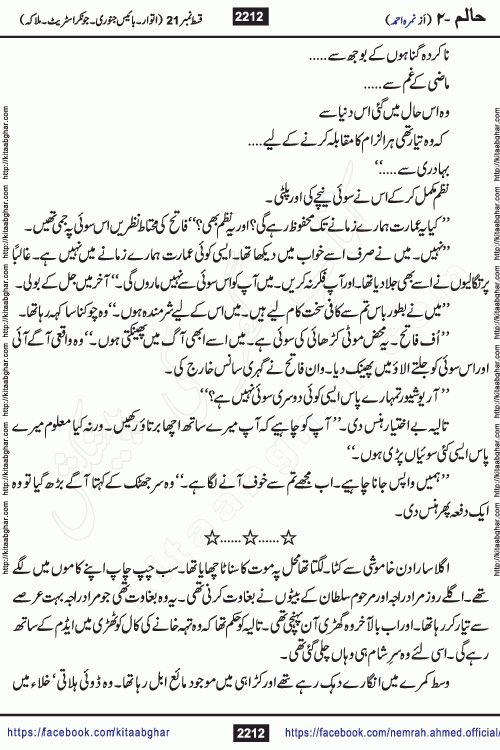 حالم ۔۲ (از نمرہ احمد) 2212 قسط نمبر 21 (اتوار۔بائیس جنوری۔جونکر اسٹریٹ۔ملاکہ)
ناکردہ گناہوں کے بوجھ سے.....
ماضی کے غم سے.....
وہ اس حال میں گئی اس دنیا سے
کہ وہ تیار تھی ہر الزام کا مقابلہ کرنے کے لیے....
بہادری سے.....‘‘
نظم مکمل کر کے اس نے سوئی نیچے کی اور پلٹی۔
’’کیا یہ عمارت ہمارے زمانے تک محفوظ رہے گی؟ اور یہ نظم بھی؟‘‘ فاتح کی محتاط نظریں اس سوئی پہ جمی تھیں۔
’’نہیں۔ میں نے صرف اسے خواب میں دیکھا تھا۔ ایسی کوئی عمارت ہمارے زمانے میں نہیں ہے۔ غالباً
پرتگالیوں نے اسے بھی جلا دیا تھا۔ اور آپ فکر نہ کریں۔ میں آپ کو اس سوئی سے نہیں ماروں گی۔‘‘ آخر میں جل کے بولی۔
’’میں نے بطور باس تم سے کافی سخت کام لیے ہیں۔ میں اس کے لیے شرمندہ ہوں۔‘‘ وہ چوکنا سا کہہ رہا تھا۔
’’اُف فاتح۔ یہ محض موٹی کڑھائی کی سوئی ہے۔ میں اسے ابھی آگ میں پھینکتی ہوں۔‘‘ وہ واقعی آگے آئی
اور اس سوئی کو جلتے الاؤ میں پھینک دیا۔ وان فاتح نے گہری سانس خارج کی۔
’’آر یو شیور تمہارے پاس ایسی کوئی دوسری سوئی نہیں ہے؟‘‘
تالیہ بے اختیار ہنس دی۔ ’’آپ کو چاہیے کہ آپ میرے ساتھ اچھا برتاؤ رکھیں۔ ورنہ کیا معلوم میرے
پاس ایسی کئی سوئیاں پڑی ہوں۔‘‘
’’ہمیں واپس جانا چاہیے۔ اب مجھے تم سے خوف آنے لگا ہے۔‘‘ وہ سر جھٹک کے کہتا آگے بڑھ گیا تو وہ
ایک دفعہ پھر ہنس دی۔
☆......☆......☆
اگلا سارا دن خاموشی سے کٹا۔ لگتا تھا محل پہ موت کا سناٹا چھایا تھا۔ سب چپ چاپ اپنے کاموں میں لگے
تھے۔ اگلے روز مراد راجہ اور مرحوم سلطان کے بیٹوں نے بغاوت کرنی تھی۔ یہ وہ بغاوت تھی جو مراد راجہ بہت عرصے
سے تیار کر رہا تھا۔ اور اب بالآخر وہ گھڑی آن پہنچی تھی۔ تالیہ کو حکم تھا کہ وہ تہہ خانے کی کال کوٹھڑی میں ایڈم کے ساتھ
رہے گی۔ اسی لئے وہ سرِ شام ہی وہاں چلی گئی تھی۔
وسط کمرے میں انگارے دہک رہے تھے اور کڑاہی میں موجود مائع ابل رہا تھا۔ وہ ڈوئی ہلاتی‘ خلاء میں
https://facebook.com/kitaabghar 2212 https://facebook.com/nemrah.ahmed.official/